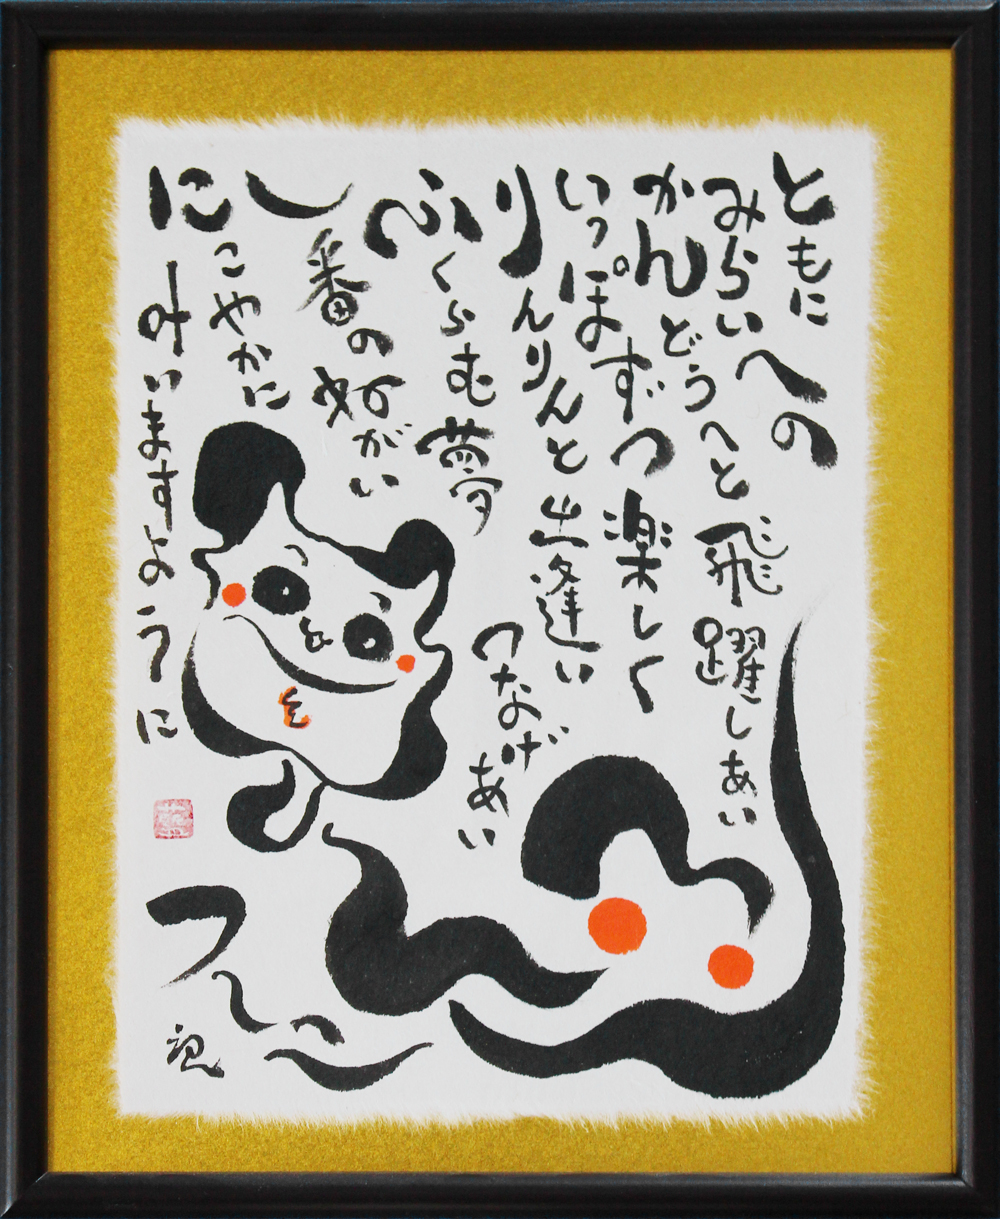 ともに
みらいへの
かんどうへと飛躍しあい
いっぽずつ楽しく
りんりんと出逢い
つなげあい
ふくらむ夢
一番のねがい
にこやかに
叶いますように